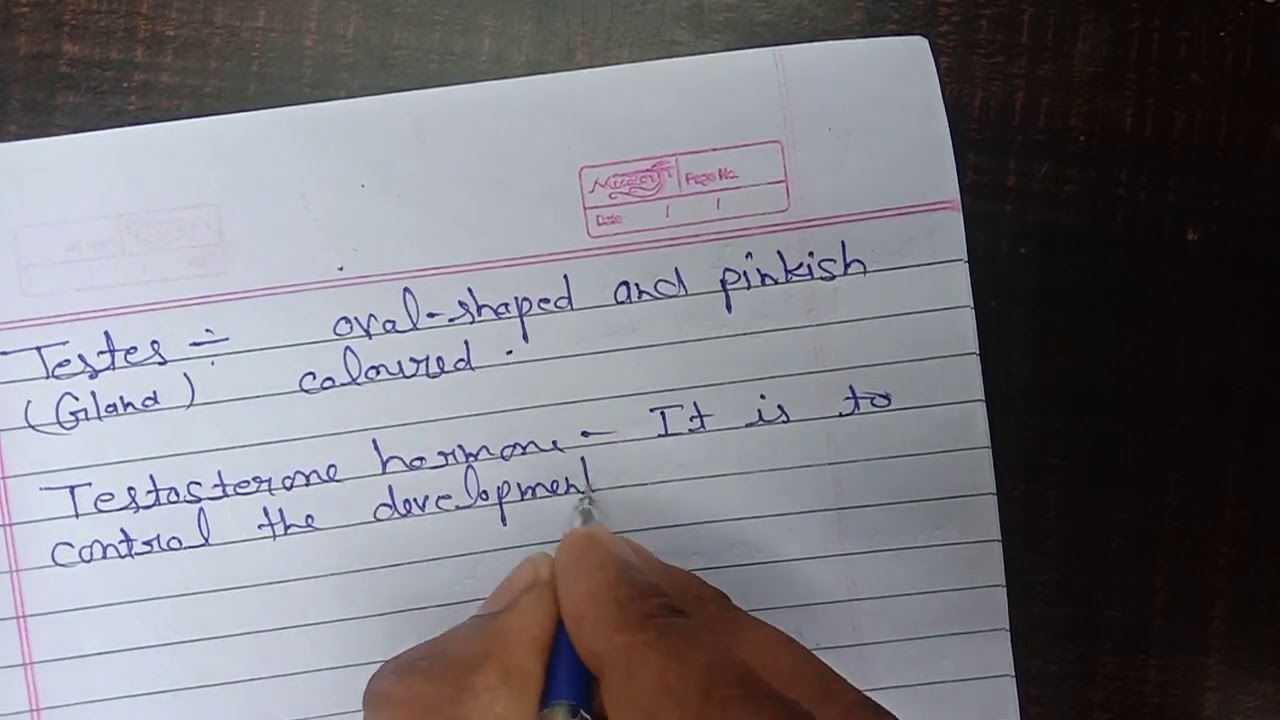 Page No.
Date
Testes ÷ oval-shaped and pinkish
(Gland) coloured.
Testosterone hormone - It is to
control the development